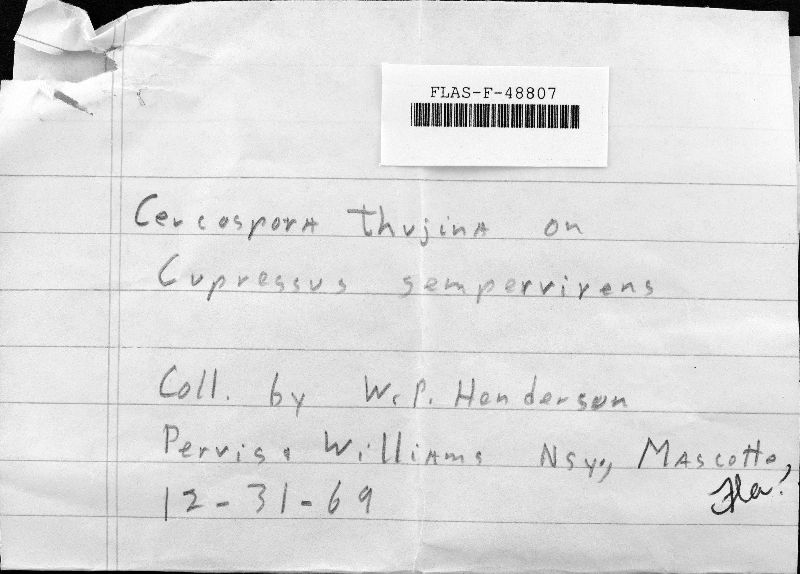 FLAS-F-48807
Cercospora thujina on
Cupressus sempervirens
Coll. by W.P. Henderson
Pervis & Williams Nsy., Mascotte,
Fla.
12-31-69